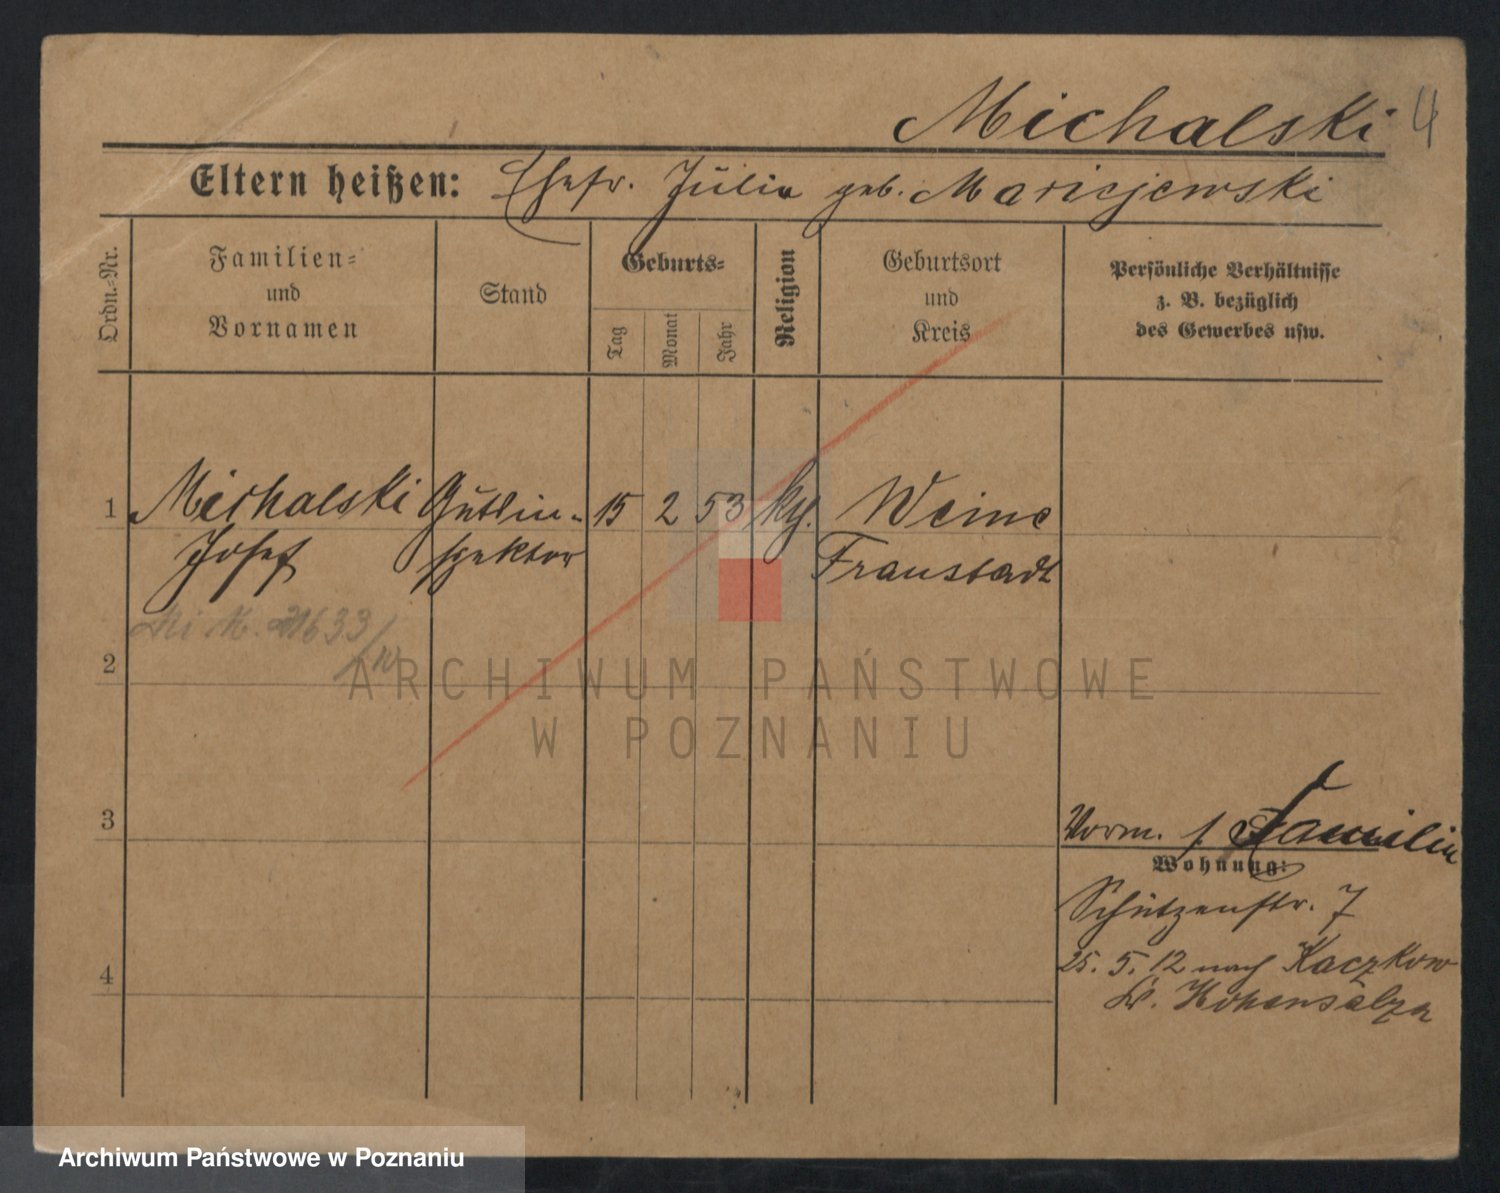 Michalski 4
Eltern heißen: Ehefr. Julia geb. Maricjewski
Ordn.-Nr.
Familien-
und
Vornamen
Stand
Geburts-
Tag
Monat
Jahr
Religion
Geburtsort
und
Kreis
Persönliche Verhältnisse
z. B. bezüglich
des Gewerbes usw.
1 Michalski Gutsin- 15 2 53 Weine
Josef spektor Fraustadt
2
3
Vorm. s. Familie
Wohnung:
Schützenstr. 7
25. 5. 12 nach Kaczkow
4
Kr. Hohensalza
ARCHIWUM PAŃSTWOWE
W POZNANIU
Archiwum Państwowe w Poznaniu